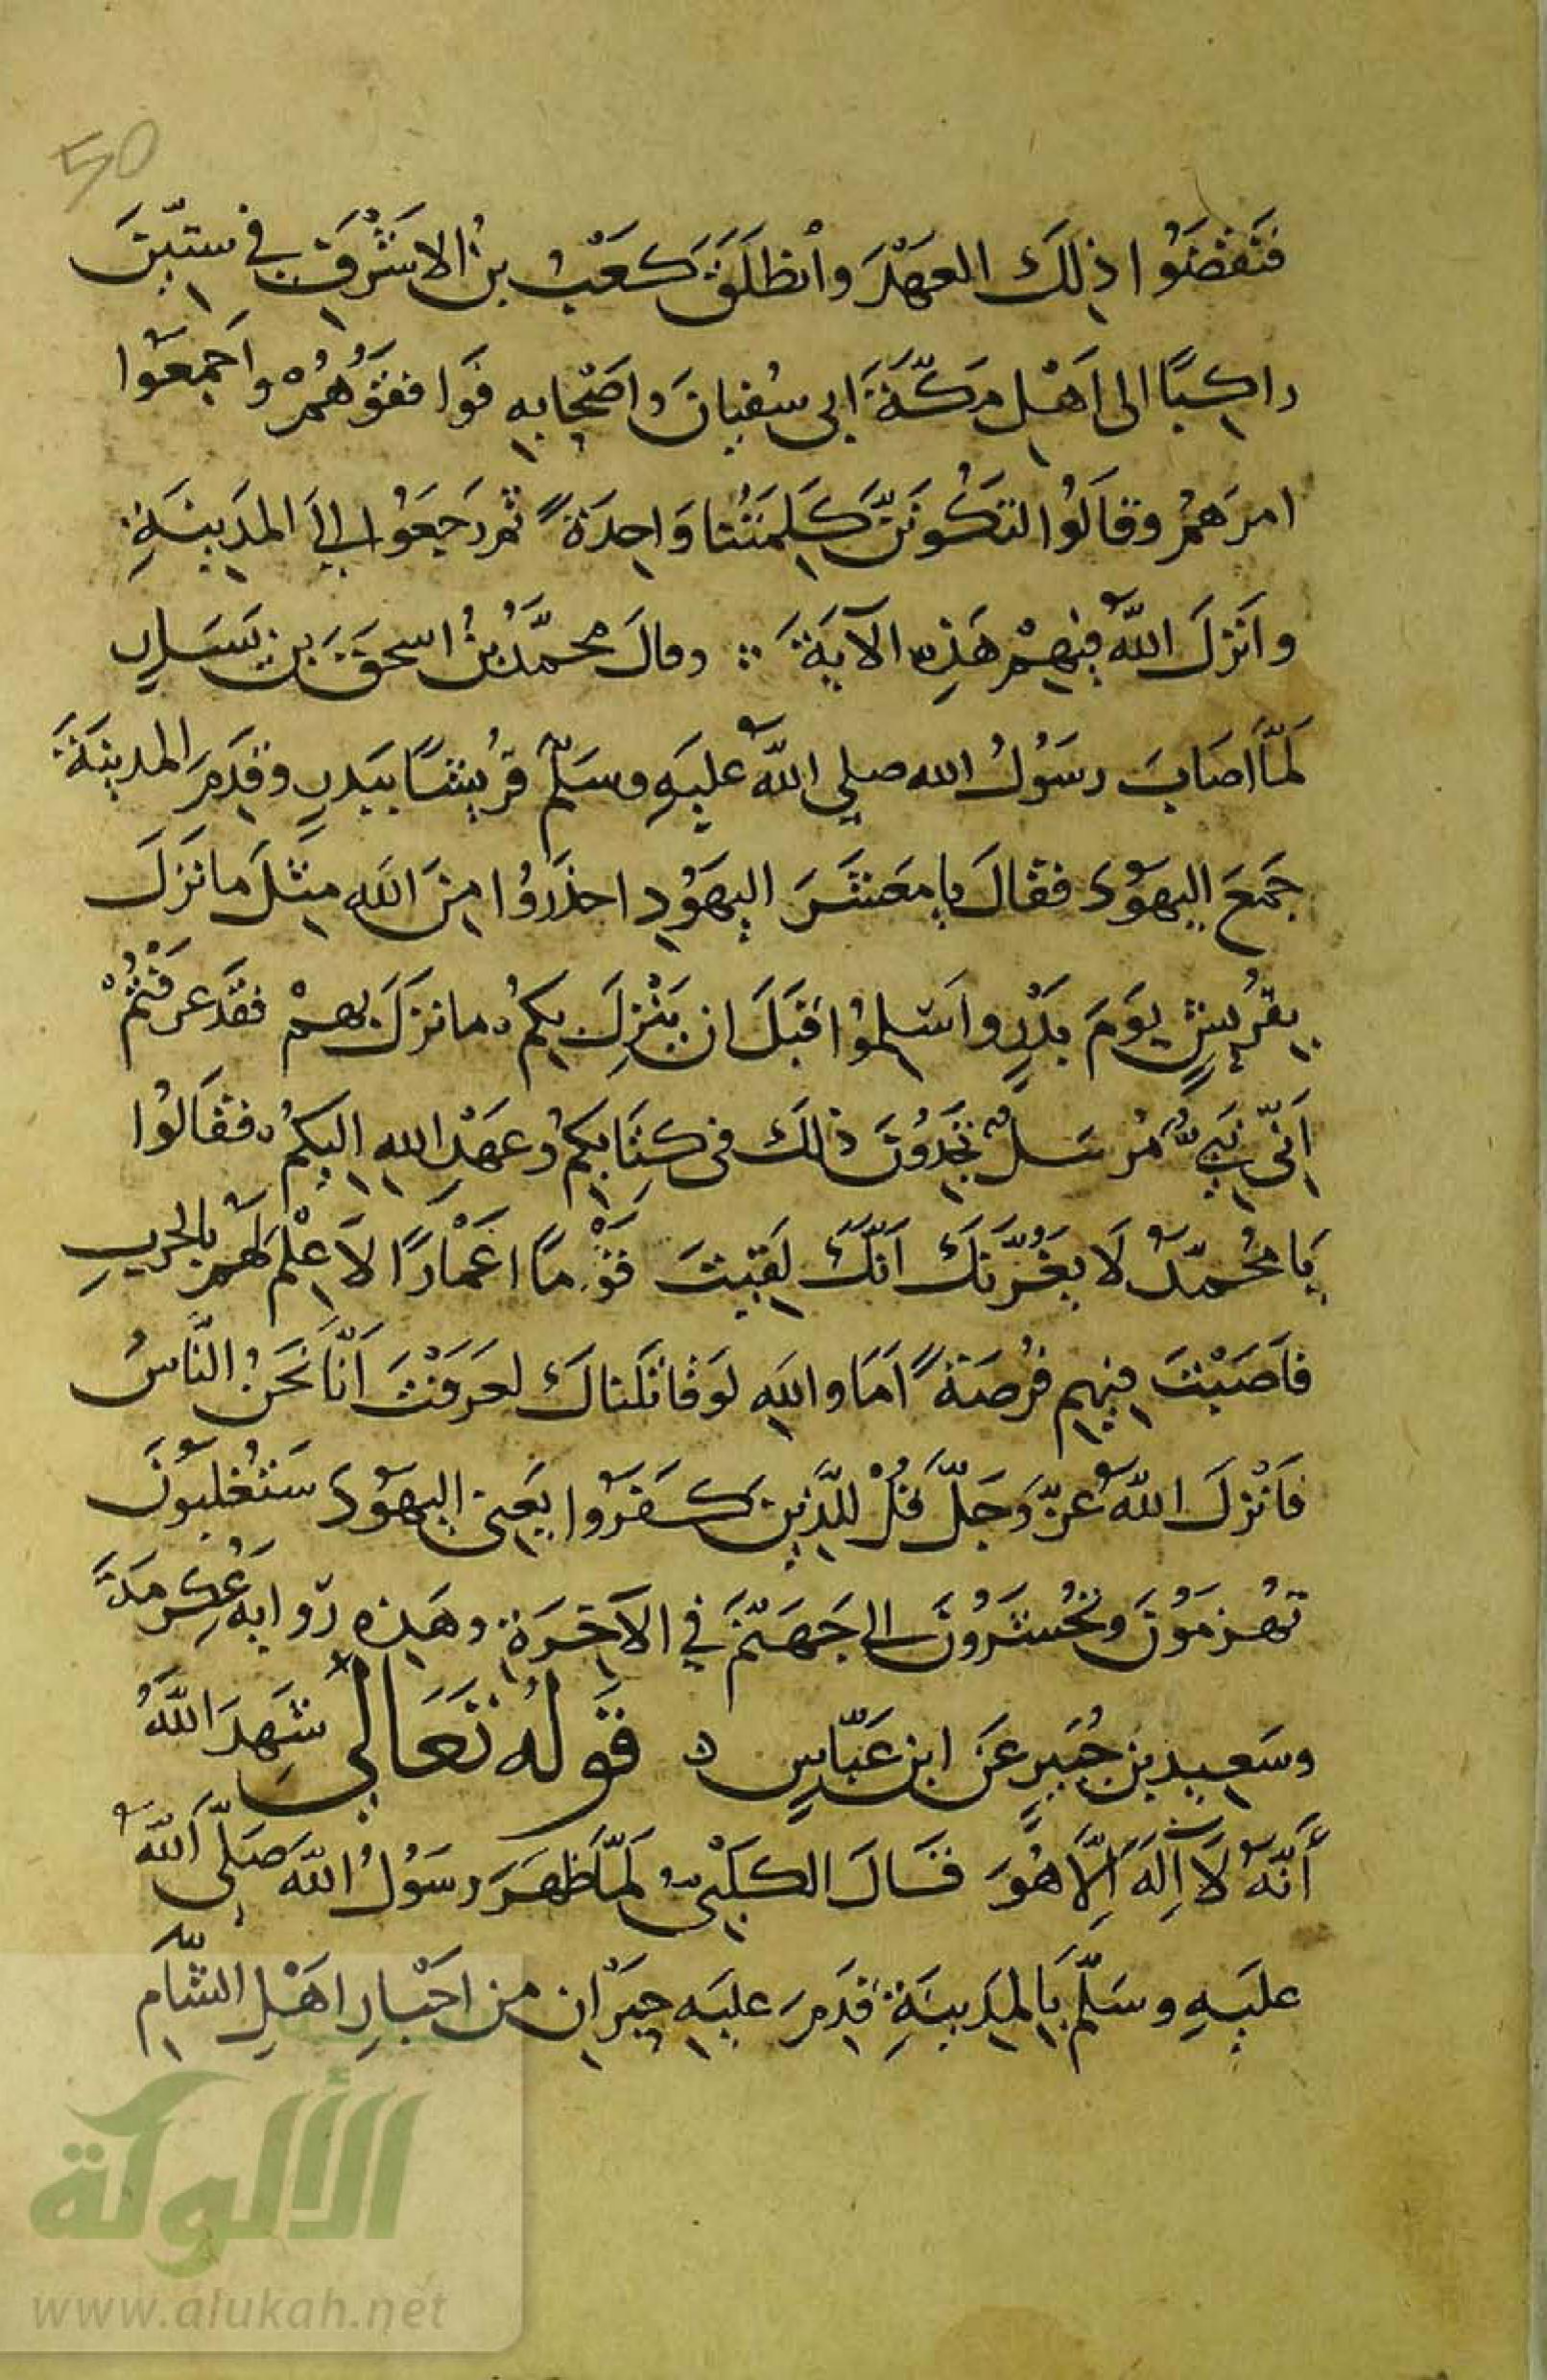 50
فَنَقَضُوا ذلِكَ العَهْدَ وانْطَلَقَ كَعْبُ بنُ الاشْرَفِ في ستّينَ
راكِبًا الى اَهْلِ مَكَّةَ اَبى سُفيانَ واَصْحابِهِ فَوافقُوهُمْ واَجمَعُوا
امرَهمُ وقالُوا لتَكُونَنَّ كَلِمَتُنا وَاحِدَةً ثم رَجَعُوا إلى المدَينَةِ
واَنزَلَ اللّهُ فيهِمْ هَذِه الآيَةَ وقالَ محمَّدُ بنُ اسحقَ بنِ يَسَارٍ
لَمَّا اصَابَ رسُولُ الله صلى اللّهُ عليَهِ وسَلّم قرُيشًا ببَدرٍ وقدِمَ المدينَةَ
جَمعَ اليهوُدَ فقالَ يا مَعشَرَ اليهوُدِ احذَرُوا مِنَ اللهِ مِثلَ ما نزَلَ
بِقرُيشٍ يومَ بَدْرٍ واَسْلِموُا قبَلَ ان ينْزِلَ بِكمُ ما نزَلَ بِهمْ فقَد عرَفْتُمْ
اَنّى نَبِيٌّ مُرسَلٌ تجِدُونَ ذلكَ فى كِتَابِكمُ وعَهْدِ اللهِ اليكمُ فقَالُوا
يَا مُحمَّدُ لَا يَغُرَّنكَ اَنّكَ لَقيتَ قَوْمًا اَغْمارًا لاَ عِلْمَ لَهمُ بالحَربِ
فاَصَبْتَ فيهِم فُرصَةً اَمَا واللهِ لوَ قاتَلناكَ لعرَفْتَ اَنَّا نحَنُ النَّاسُ
فاَنْزلَ اللّهُ عزّ وَجَلّ قُلْ للّذينَ كفَرُوا يَعنى اليهوُدَ سَتُغلبوُنَ
تُهزمَوُنَ وتُحْشَرُونَ الى جَهَنّمَ في الآخِرَةِ وهَذِه رِوايَةُ عِكرِمَةَ
وسَعيدِ بنِ جُبَيرٍ عنَ ابنِ عَبّاسٍ ه قَولُه تَعَالَى شَهِدَ اللَّهُ
أَنَّهُ لَا اِلهَ اِلَّا هُوَ قَالَ الكَلْبِىُّ لَمَّا ظَهرَ رسُولُ اللهِ صَلّى اَللّهُ
عليَهِ وسَلّم بِالمَدينَةِ قدِمَ عليَهِ حِبرَانِ من احَبْارِ اهَلِ الشّام
الألوكة
www.alukah.net